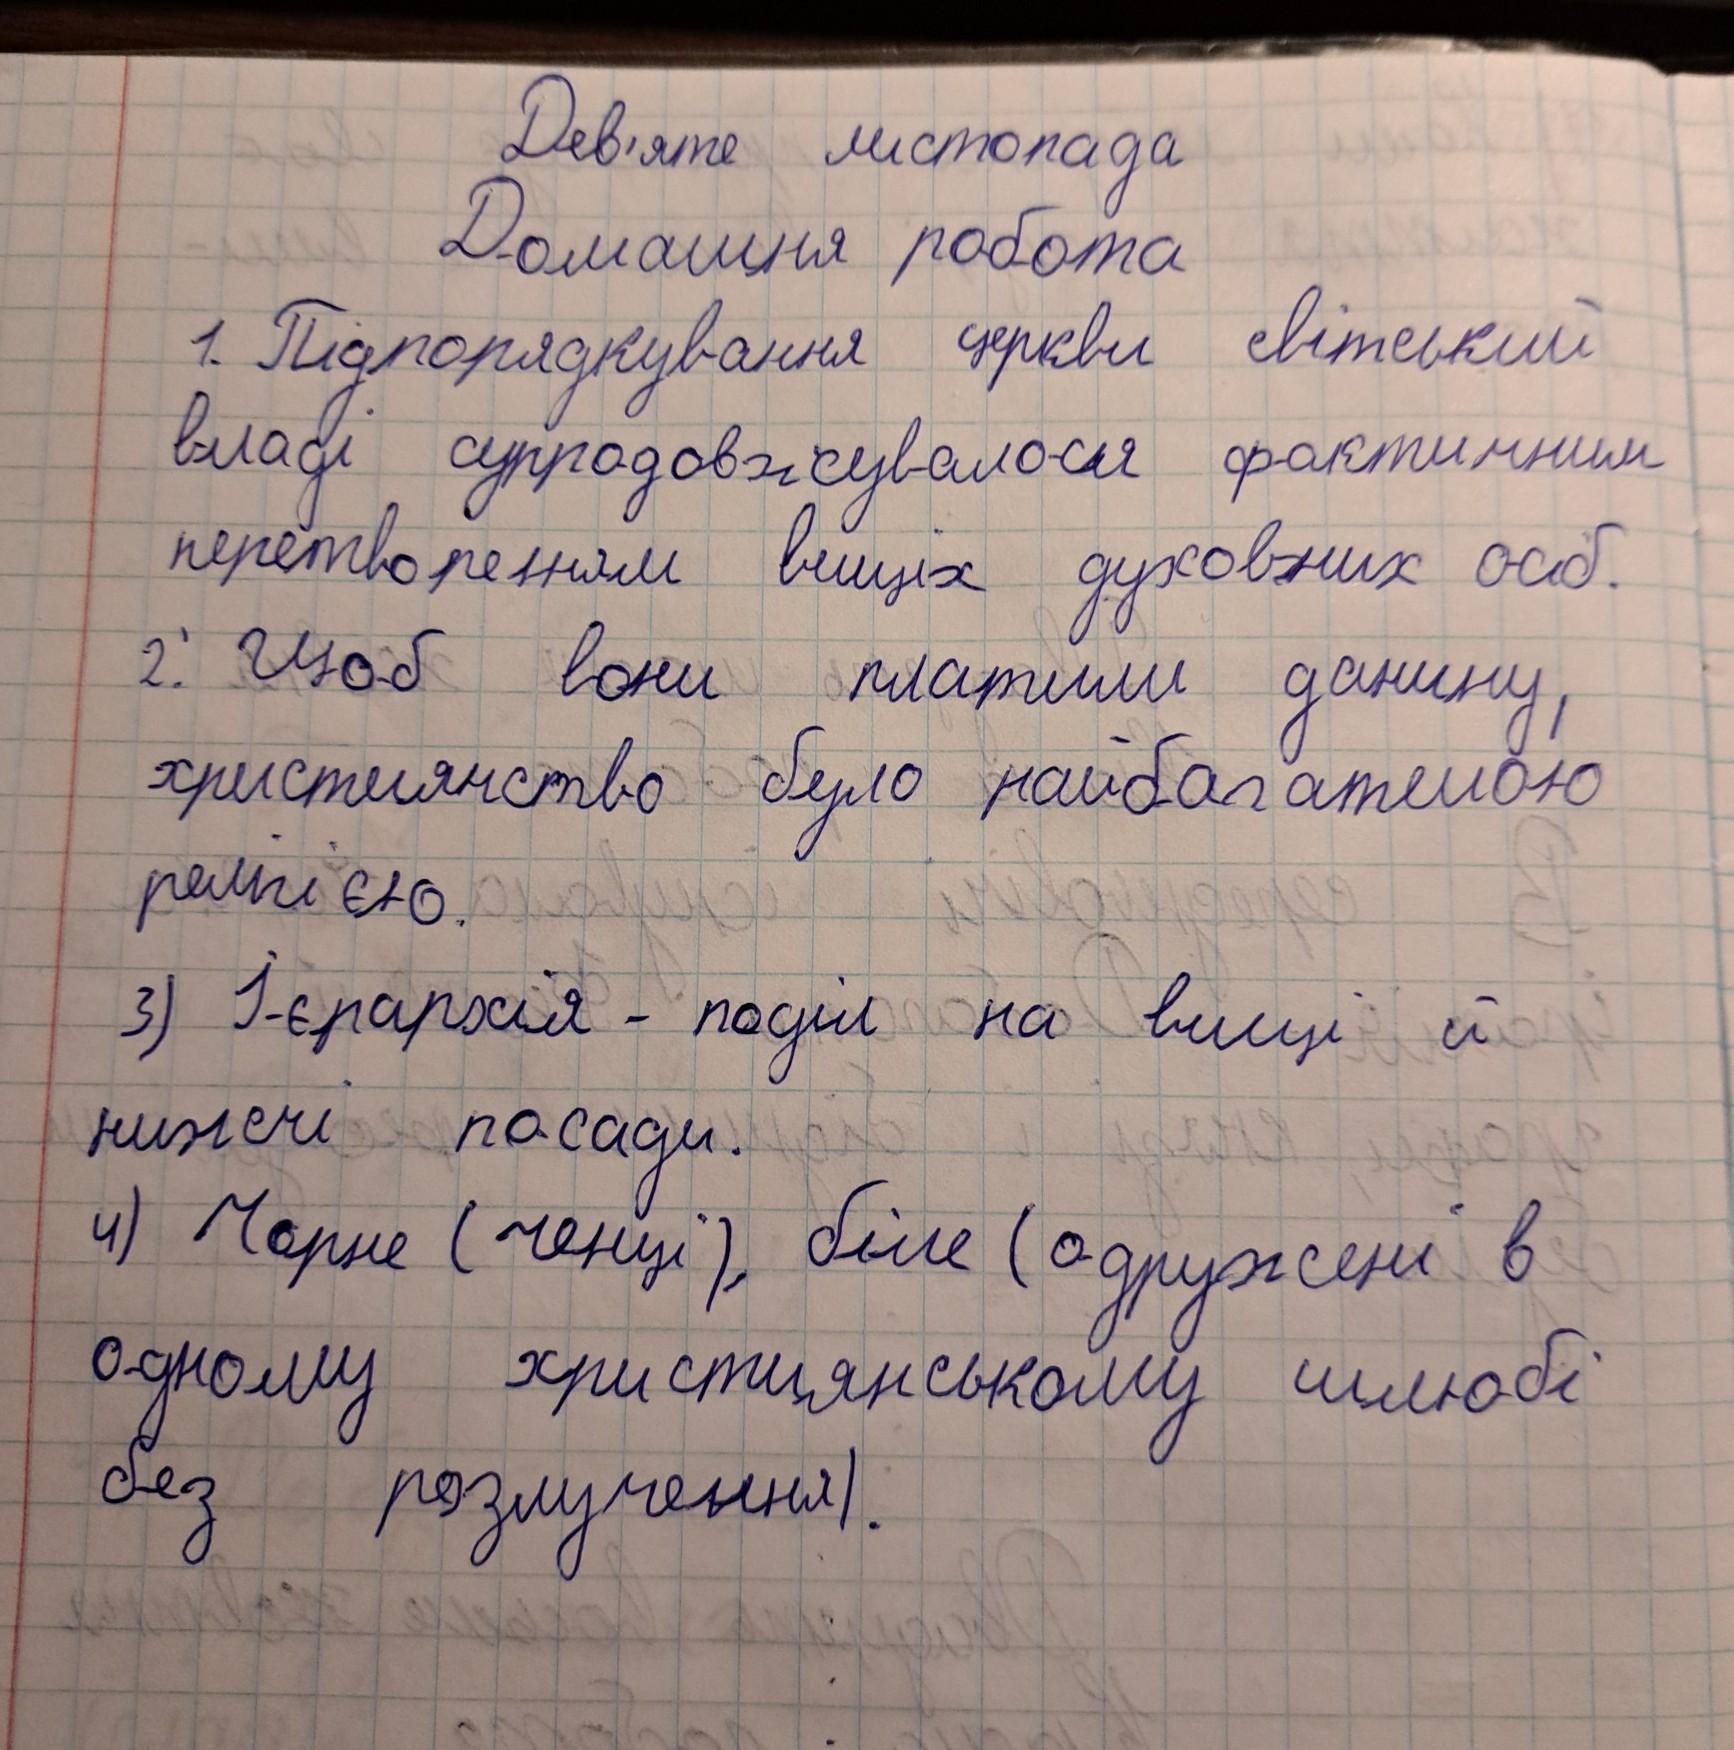 Дев'яте листопада
Домашня робота
1. Підпорядкування церкви світський
владі супродовжувалося фактичним
перетворенням вищіх духовних осіб.
2. Щоб вони платили данину,
християнство було найбагатшою
релігією.
3) І-єрархія - поділ на вищі й
нижчі посади.
4) Чорне (ченці), біле (одружені в
одному християнському шлюбі
без розлучення).